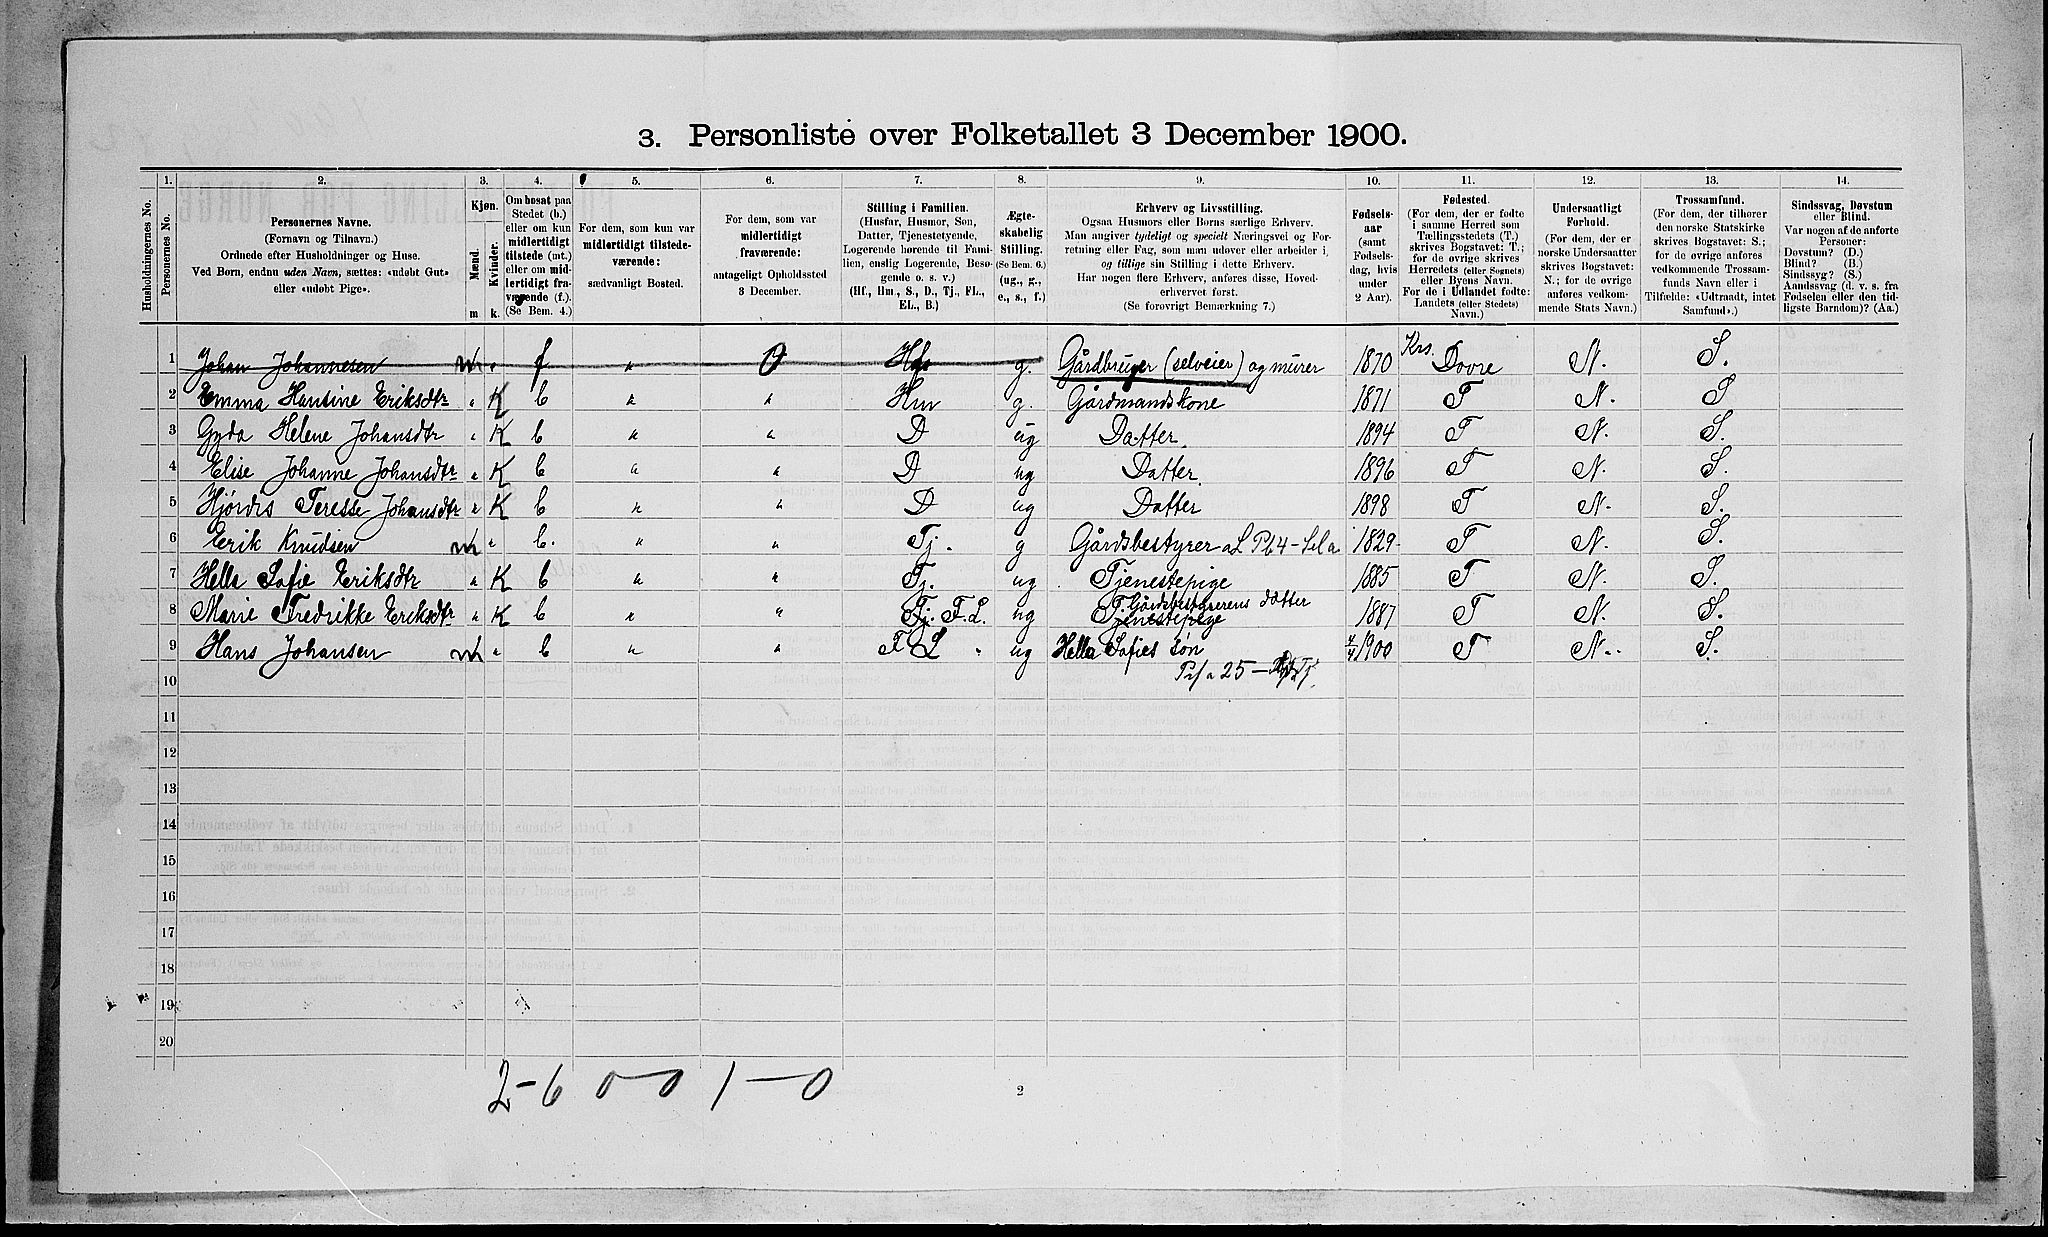 3. Personliste over Folketallet 3 December 1900.
1. 2. 3. 4. 5. 6. 7. 8. 9. 10. 11. 12. 13. 14.
Husholdningernes No.
Personernes No.
Personernes Navne.
(Fornavn og Tilnavn.)
Ordnede efter Husholdninger og Huse.
Ved Børn, endnu uden Navn, sættes: «udøbt Gut»
eller «udøbt Pige».
Kjøn.
Mænd.
Kvinder.
m k.
Om bosat paa
Stedet (b.)
eller om kun
midlertidigt
tilstede (mt.)
eller om mid-
lertidigt fra-
værende (f.).
(Se Bem. 4.)
For dem, som kun var
midlertidigt tilstede-
værende:
sædvanligt Bosted.
For dem, som var
midlertidigt
fraværende:
antageligt Opholdssted
3 December.
Stilling i Familien.
(Husfar, Husmor, Søn,
Datter, Tjenestetyende,
Logerende hørende til Fami-
lien, enslig Logerende, Besø-
gende o. s. v.)
(Hf., Hm., S., D., Tj., FL.,
EL., B.)
Ægte-
skabelig
Stilling.
(Se Bem. 6.)
(ug., g.,
e., s., f.)
Erhverv og Livsstilling.
Ogsaa Husmors eller Børns særlige Erhverv.
Man angiver tydeligt og specielt Næringsvei og For-
retning eller Fag, som man udøver eller arbeider i,
og tillige sin Stilling i dette Erhverv.
Har nogen flere Erhverv, anføres disse, Hoved-
erhvervet først.
(Se forøvrigt Bemærkning 7.)
Fødsels-
aar
(samt
Fødsels-
dag, hvis
under
2 Aar).
Fødested.
(For dem, der er fødte
i samme Herred som
Tællingsstedets (T.)
skrives Bogstavet: T.;
for de øvrige skrives
Herredets (eller Sognets)
eller Byens Navn.
For de i Udlandet fødte:
Landets (eller Stedets)
Navn.)
Undersaatligt
Forhold.
(For dem, der er
norske Undersaatter
skrives Bogstavet:
N.; for de øvrige
anføres vedkom-
mende Stats Navn.)
Trossamfund.
(For dem, der tilhører
den norske Statskirke
skrives Bogstavet: S.;
for de øvrige anføres
vedkommende Trossam-
funds Navn eller i
Tilfælde: «Udtraadt, intet
Samfund».)
Sindssvag, Døvstum
eller Blind.
Var nogen af de anførte
Personer:
Døvstum? (D.)
Blind? (B.)
Sindssyg? (S.)
Aandssvag (d. v. s. fra
Fødselen eller den tid-
ligste Barndom)? (Aa.)
1 Johan Johannesen m " f " 0 Hf g. Gårdbruger (selveier) og murer 1870 Krs. Dovre N. S.
2 Emma Hansine Eriksdtr " K b " " Hm g. Gårdmandskone 1871 T N. S
3 Gyda Helene Johansdtr " K b " " D ug Datter. 1894 T N. S.
4 Elise Johanne Johansdtr " K b " " D ug Datter. 1896 T N. S.
5 Hjørdis Teresse Johansdtr " K b " " D ug Datter 1898 T N. S.
6 Erik Knudsen m " b. " " Tj. g Gårdsbestyrer 1829 T N. S.
7 Hella Sofie Eriksdtr " K b " " Tj. ug Tjenestepige 1885 T N. S.
Gårdsbestyrerens datter
8 Marie Fredrikke Eriksdtr " K b " " Tj. F.L. ug Tjenestepige 1887 T N. S.
9 Hans Johansen m " b " " F L " ug Hella Sofies søn 4/4 1900 T N. S.
10
11
12
13
14
15
16
17
18
19
20
2-6 0-0 1-0
2